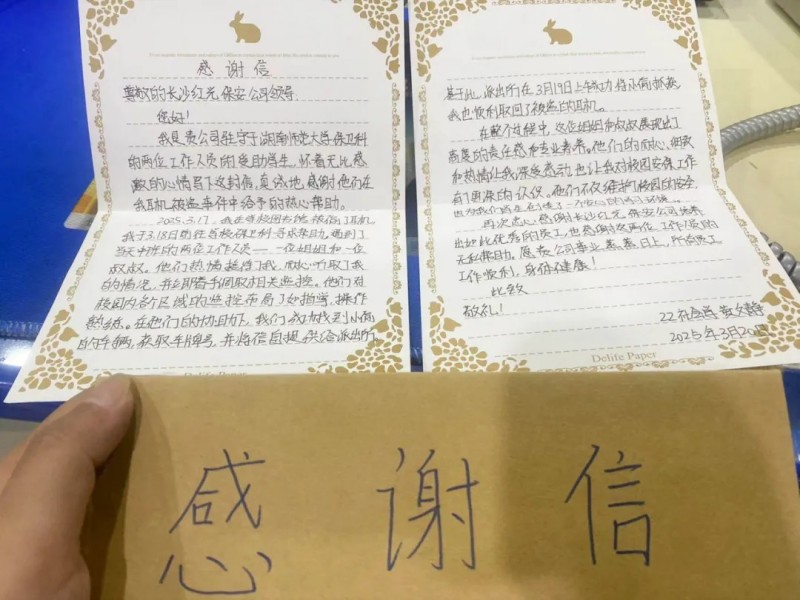 感谢信
尊敬的长沙红光保安公司领导
您好!
我是贵公司驻守于湖南师范大学保卫科
的两位工作人员的受助学生,怀着无比感
激的心情写下这封信,真诚地感谢他们在
我耳机被盗事件中给予的热心帮助。
2025.3.17,我在
我于3.18日前往学校保卫科寻求帮助,遇到了
当天中班的两位工作人员——一位姐姐和一位
叔叔。他们热情接待了我,耐心听取了我
的情况,并立即着手调取相关监控。他们对
校园内各个区域的监控布局了如指掌,操作
熟练。在他们的协助下,我们成功找到小偷
的车辆,获取车牌号,并将信息提供给派出所
基于此,派出所在3月19日上午成功将小偷抓获
我也顺利取回了被盗的耳机。
在整个过程中,这位姐姐和叔叔展现出了
高度的责任感和专业素养。他们的耐心、细致
和热情让我深受感动,也让我对校园安保工作
有了更深的认识。他们不仅维护了校园的安全,
再次衷心感谢长沙红光保安公司培养
出如此优秀的员工,也感谢这两位工作人员的
无私帮助。愿贵公司事业蒸蒸日上,所有员工
工作顺利,身体健康!
此致
敬礼!
2025年3月20日
Delife Paper
Delife Paper
感谢信